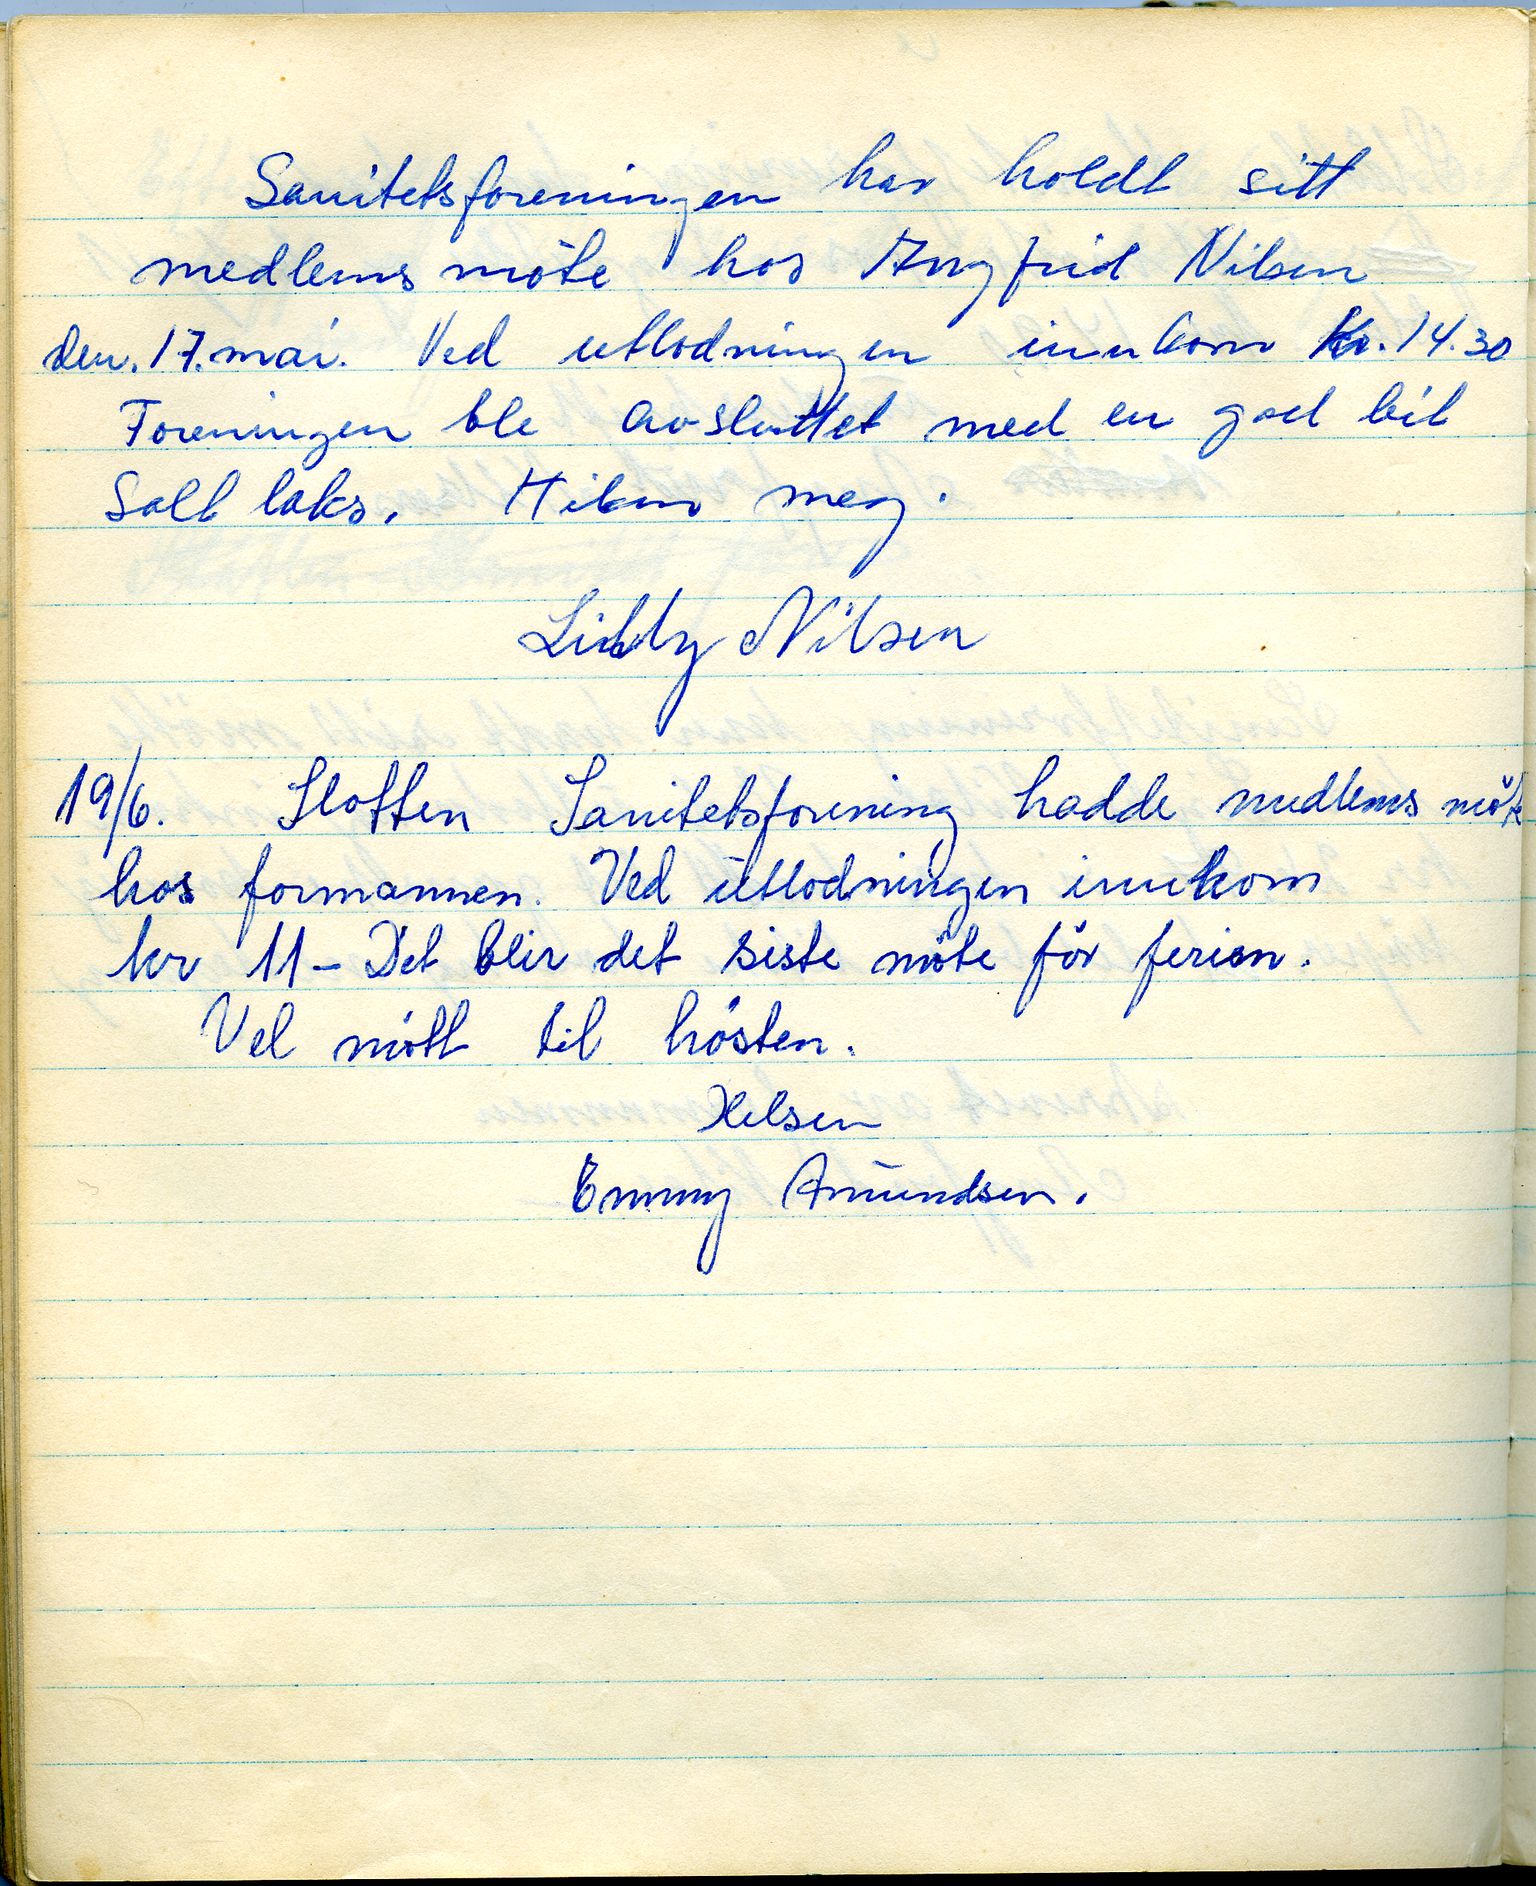 Sanitetsforeningen har holdt sitt
medlems møte hos Angfrid Nilsen
den. 17. mai. Ved utlodningen innkom Kr. 14.30
Foreningen ble avsluttet med en god bit
Salt laks. Hilsen meg.
Liddy Nilsen
19/6. Slotten Sanitetsforening hadde medlems møte
hos formannen. Ved utlodningen innkom
kr 11 – Det blir det siste møte før ferien.
Vel møtt til høsten.
Hilsen
Emmy Amundsen.